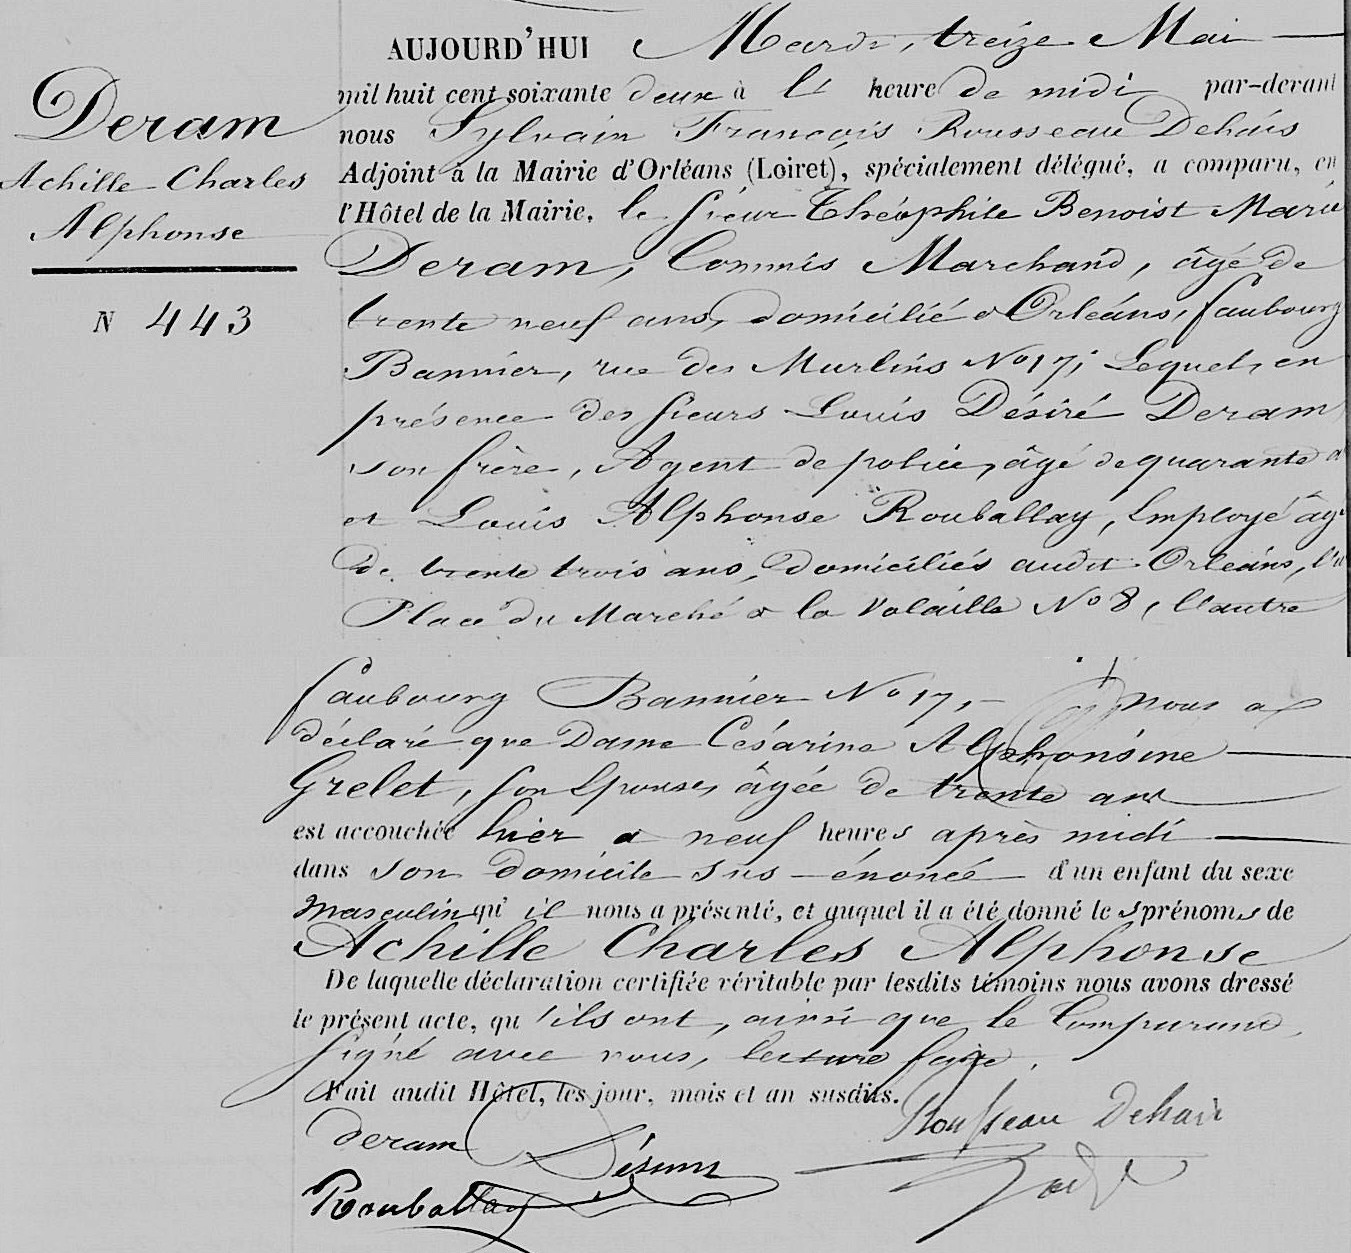 Deram
Achille Charles
Alphonse
N 443
AUJOURD'HUI Mardi, treize Mai
mil huit cent soixante deux à l' heure de midi par-devant
nous Sylvain François Rousseau Dehais
Adjoint à la Mairie d'Orléans (Loiret), spécialement délégué, a comparu, en
l'Hôtel de la Mairie, le sieur Théophile Benoist Marie
Deram, Commis Marchand, âgé de
trente neuf ans, domicilié à Orléans, faubourg
Bannier, rue des Murlins No 17; Lequel, en
présence des sieurs Louis Désiré Deram
son frère, Agent de police, âgé de quarante
et Louis Alphonse Rouballay, Employé âgé
de trente trois ans, domiciliés audit Orléans, l'u
Place du Marché à la Volaille No 8, l'autre
faubourg Bannier No 17, nous a
déclaré que Dame Césarine Alphonsine
Grelet, son Epouse, âgée de trente ans
est accouchée hier à neuf heures après midi
dans son domicile sus-énoncé d'un enfant du sexe
masculin qu'il nous a présenté, et auquel il a été donné les prénoms de
Achille Charles Alphonse
De laquelle déclaration certifiée véritable par lesdits témoins nous avons dressé
le présent acte, qu'ils ont, ainsi que le Comparant,
signé avec nous, lecture faite.
Fait audit Hôtel, les jour, mois et an susdits.
Rousseau Dehais
deram
Rouballay